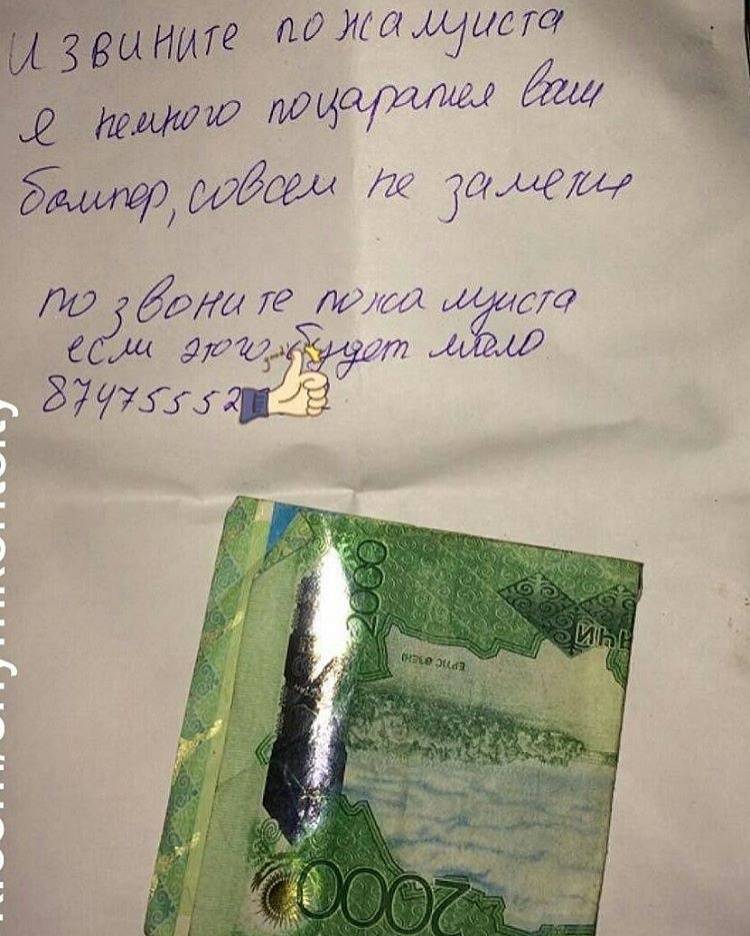 извините пожалуиста
я немного поцарапал ваш
бампер, совсем не заметил
позвоните пожалуиста
если этого будет мало
87475552
2000
ЕРТІС ӨЗЕНІ
2000